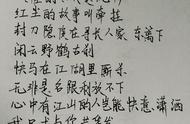 红尘的故事叫牵挂
封刀隐侠在寻常人家 东篱下
闲云野鹤古刹
快马在江湖里厮杀
无非是名跟利放不下
心中有江山的人岂能快意潇洒